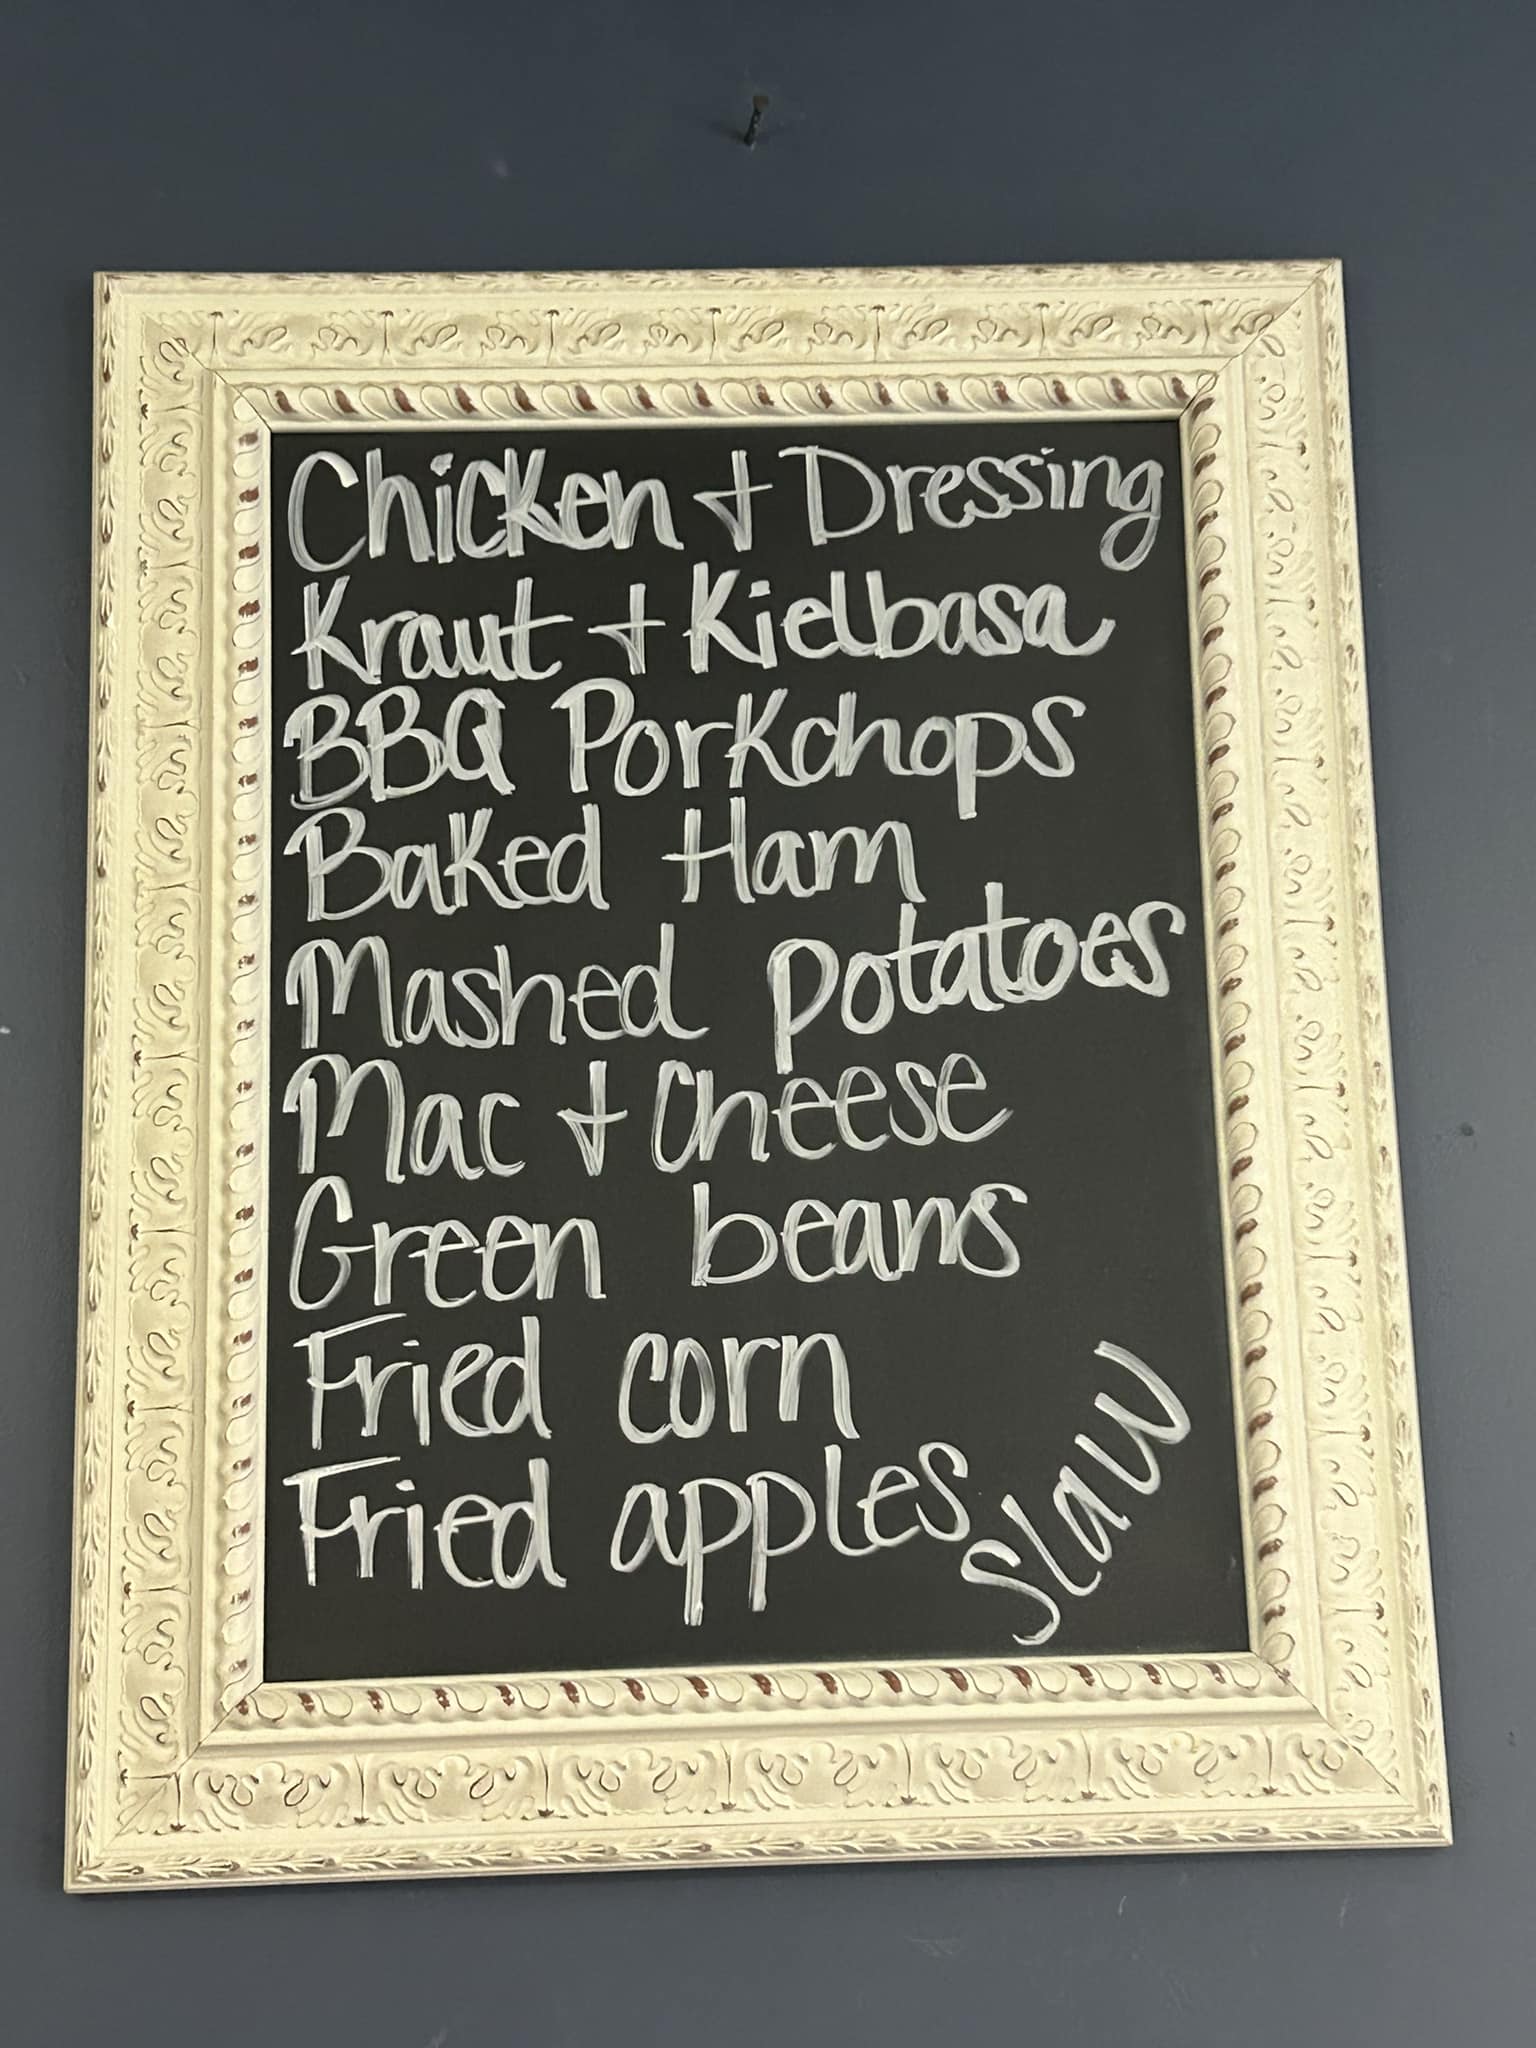 Chicken + Dressing
Kraut + Kielbasa
BBQ Porkchops
Baked Ham
Mashed potatoes
Mac + Cheese
Green beans
Fried corn
Fried apples
Slaw